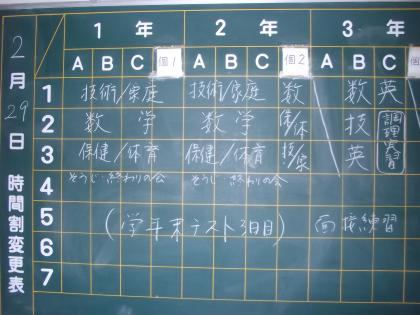 2月29日 時間割変更表
1年 2年 3年
A B C 個1 A B C 個2 A B C 個
1 技術/家庭 技術/家庭 数 数 英
2 数学 数学 保/体 技 調理実習
3 保健/体育 保健/体育 技/家 英
4 そうじ・終わりの会 そうじ・終わりの会
5 (学年末テスト3日目) 面接練習
6
7